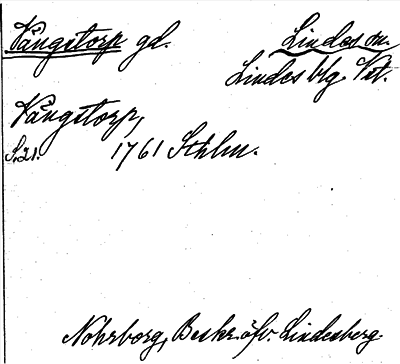 Vängstorp gd. Lindes sn.
Lindes blg. Vst.
Vängstorp,
S.21. 1761 Sthlm.
Nohrborg, Beskr. öfv. Lindesberg.